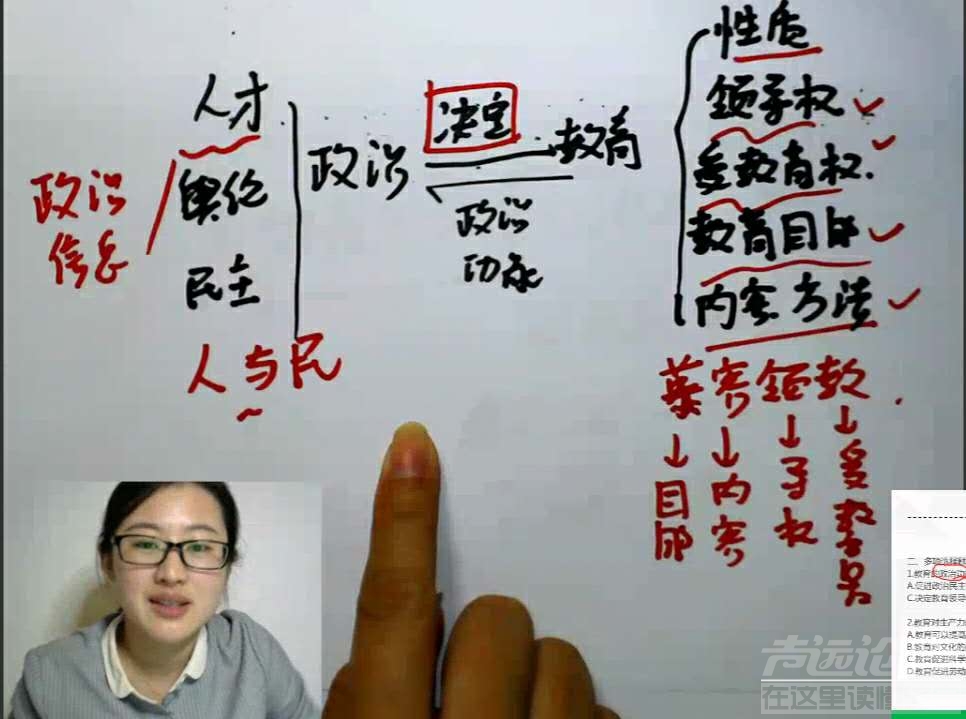 性质
领导权
受教育权.
教育目的
内容方法
人才
舆论
民主
政治
信息
政治
决定
教育
政治
功能
人与民
菜客领教
目的
内容
导权
受教育
二、多项选择题
1.教育的政治功
A.促进政治民主
C.决定教育领导
2.教育对生产力
A.教育可以提高
B.教育对文化的
C.教育促进科学
D.教育促进劳动
声远论
在这里读懂